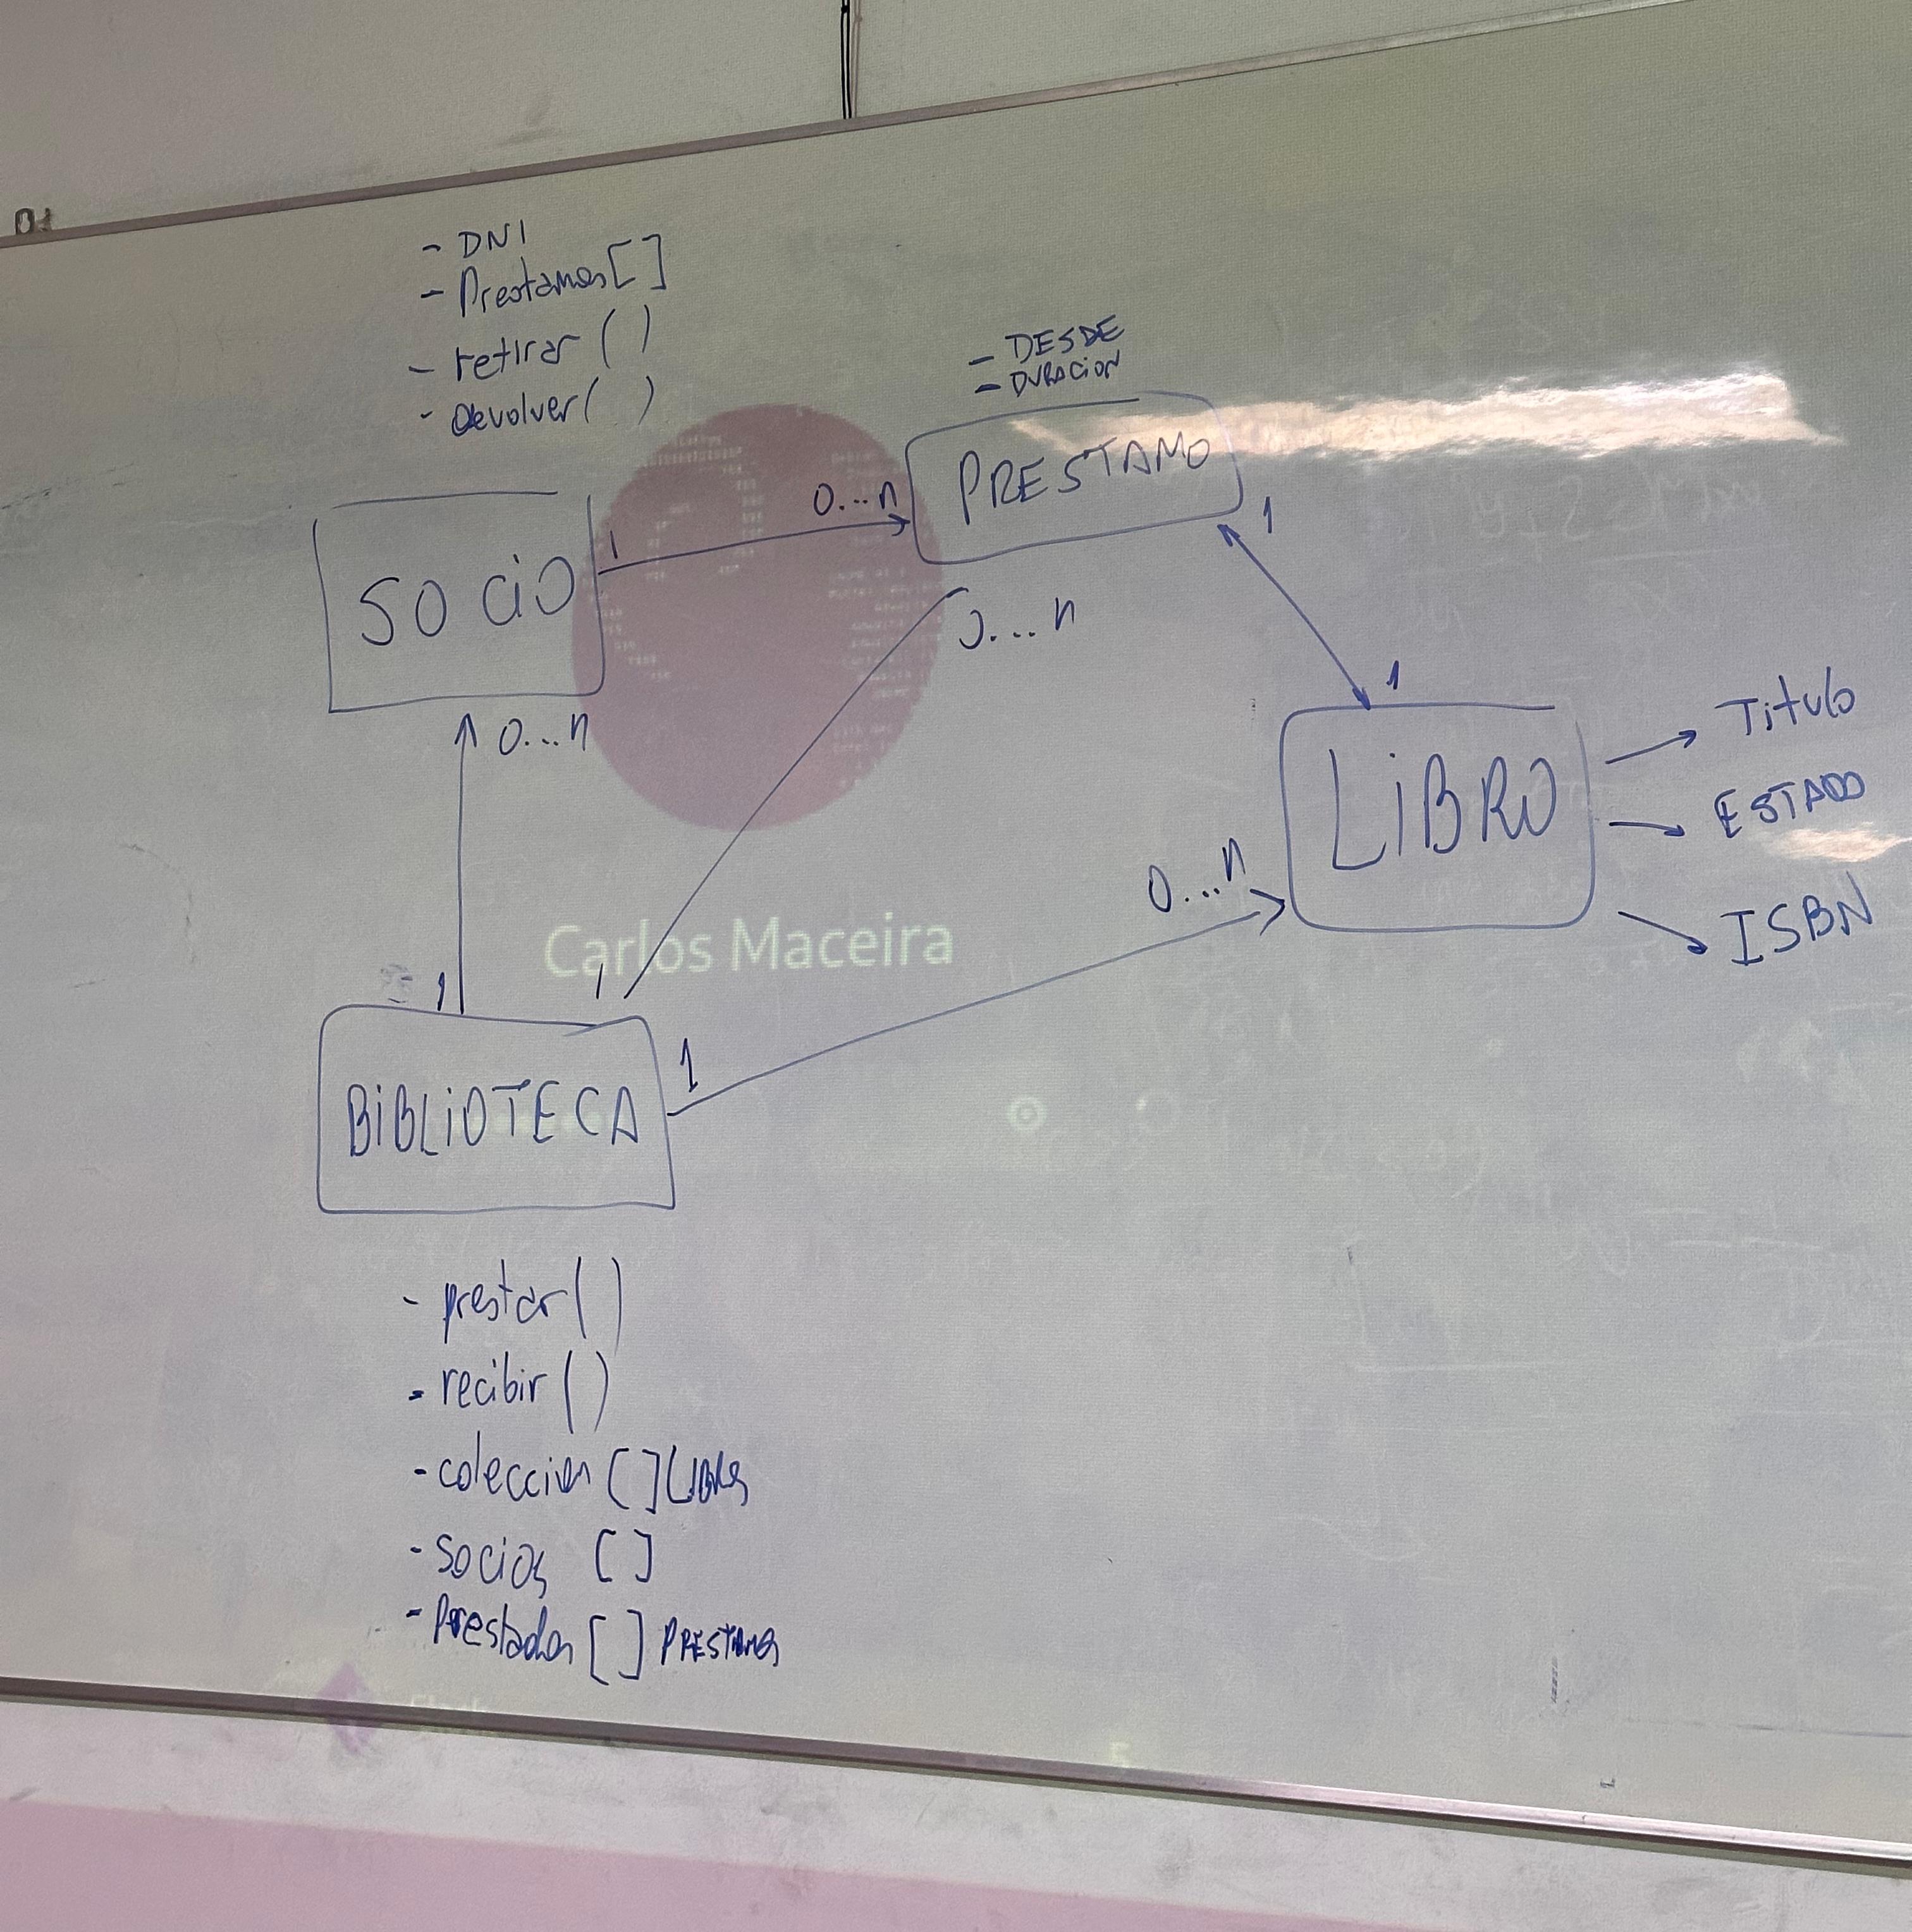 - DNI
- Prestamos []
- retirar ()
- devolver ()
- DESDE
- DURACION
PRESTAMO
0...n
1
1
SOCIO
0...n
0...n
1
LIBRO
Titulo
ESTADO
ISBN
0....n
Carlos Maceira
1
1
1
BIBLIOTECA
- prestar ()
- recibir ()
- coleccion [] LIBROS
- Socios []
- Prestados [] PRESTAMOS
5